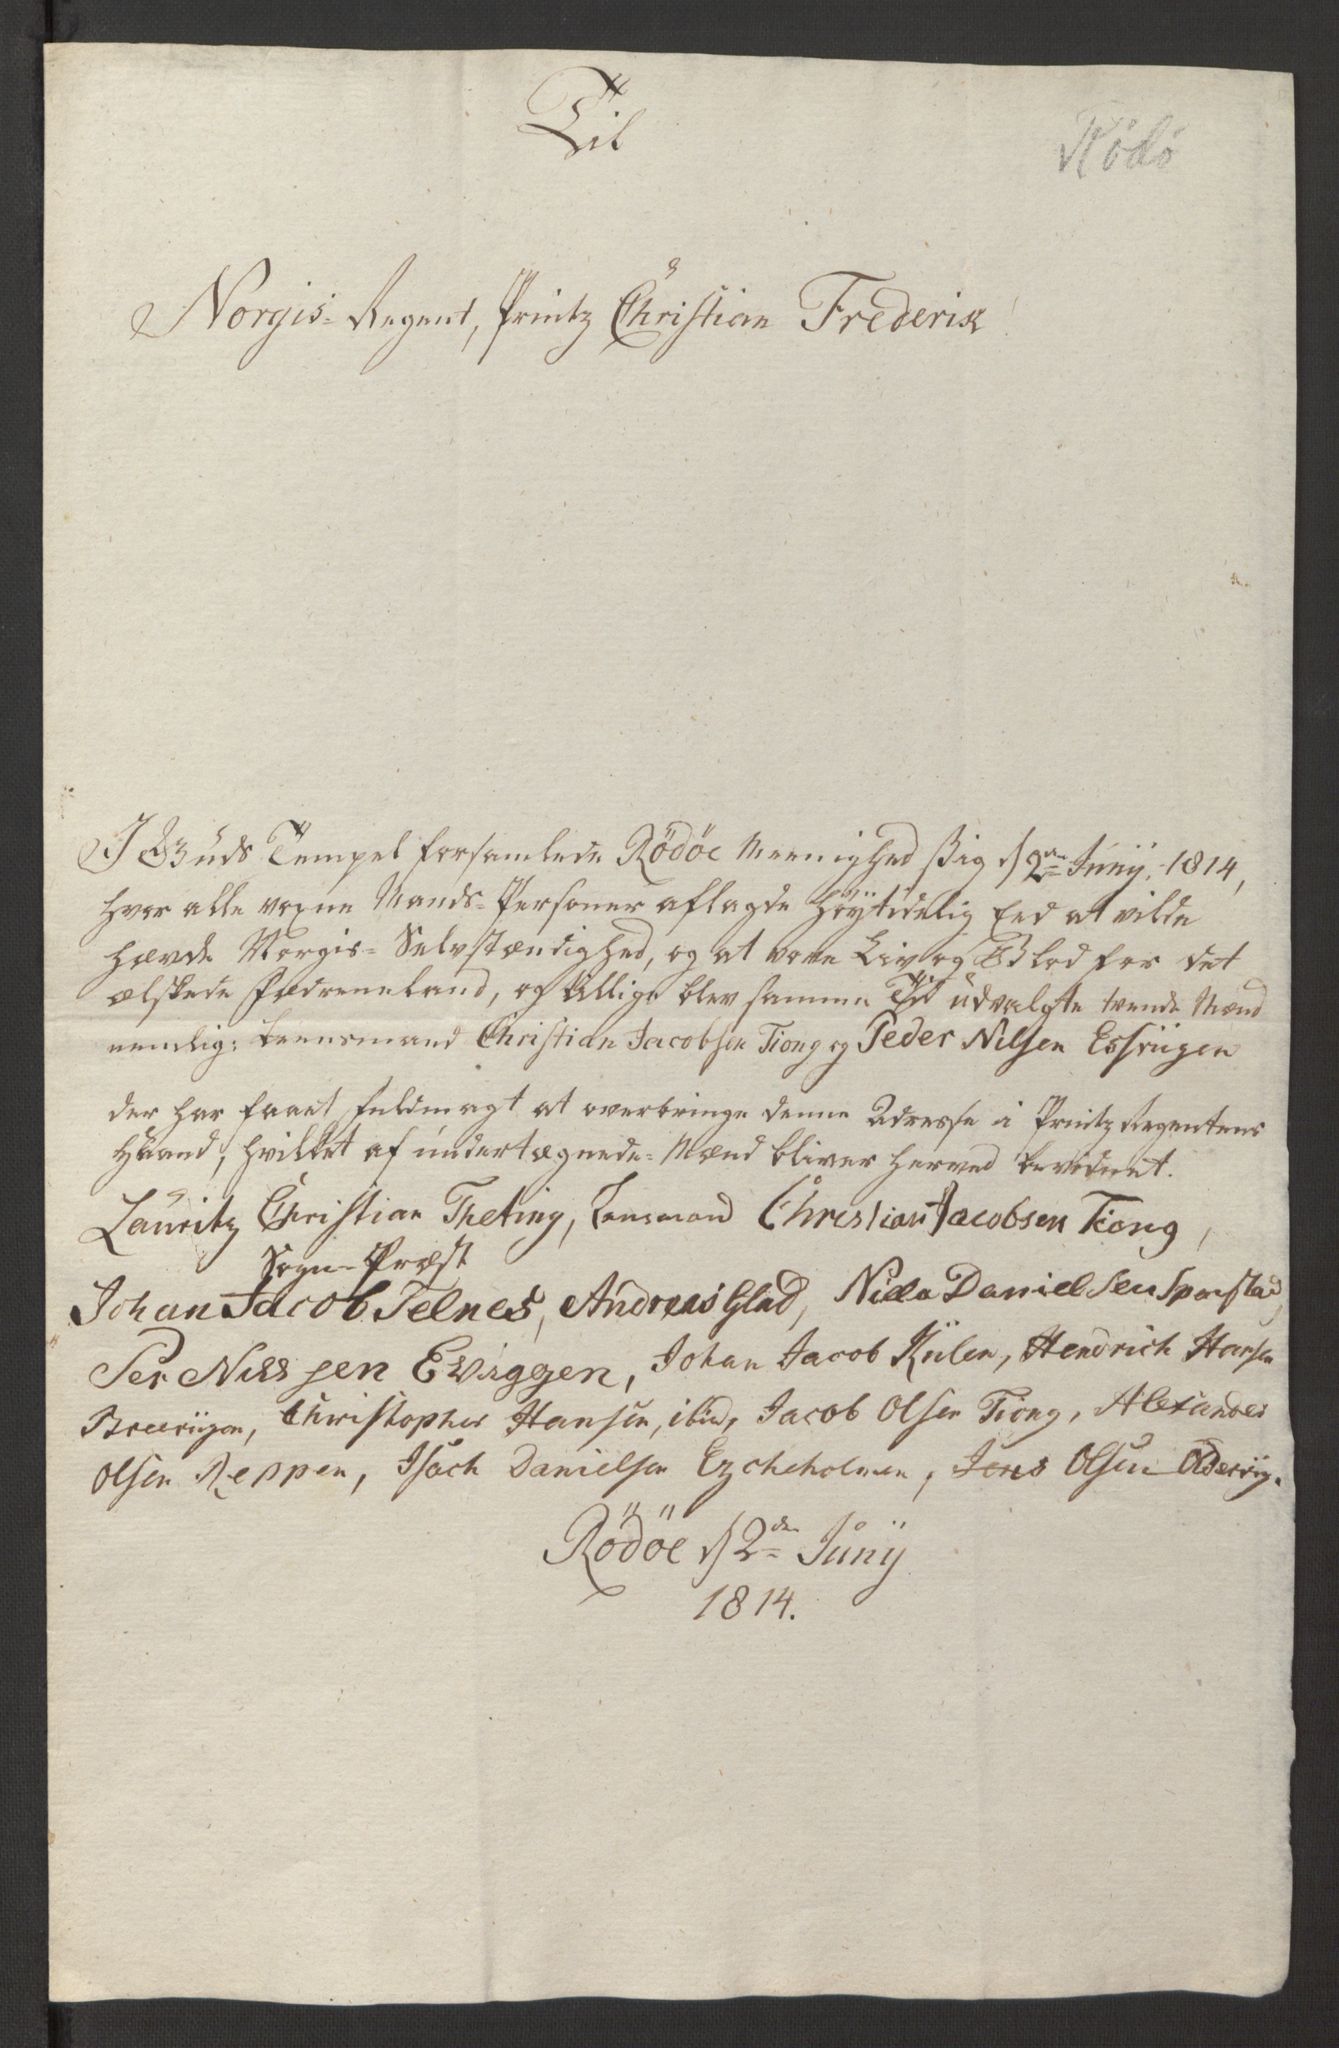 Til
Rödö
Norgis- Regent, Printz Christian Frederik
I Guds Tempel forsamlede Rödöe Meenighed sig d 2den Junij, 1814,
hvor alle voxne Mands-Personer aflagde Höytidelig Eed at vilde
hævde Norgis- Selvstændighed, og at vove Liv og Blod for det
ælskede Fædreneland, og tillige blev samme Tid udvalgte tvende Mænd
nemlig: Leensmand Christian Jacobsen Tiong og Peder Nilsen Essvigen
der har faaet Fuldmagt at overbringe denne Adresse i Printz Regentens
Haand, hvilket af undertægnede- Mænd bliver herved bevidnet.
Lauritz Christian Theting, Lensmand Christian Jacobsen Tiong,
Sogne-Præst
Johan Jacob Selnes, Andreas Glad, Niels Danielsen Sparstad,
Per Nissen Eviggen, Johan Jacob Külen, Hendrich Hansen
Breeviigen, Christopher Hansen, ibid, Jacob Olsen Tiong, Alexander
Olsen Reppen, Isach Danielsen Ezcheholmen, Jens Olsen Oldervig.
Rödöe d 2den Junij
1814.